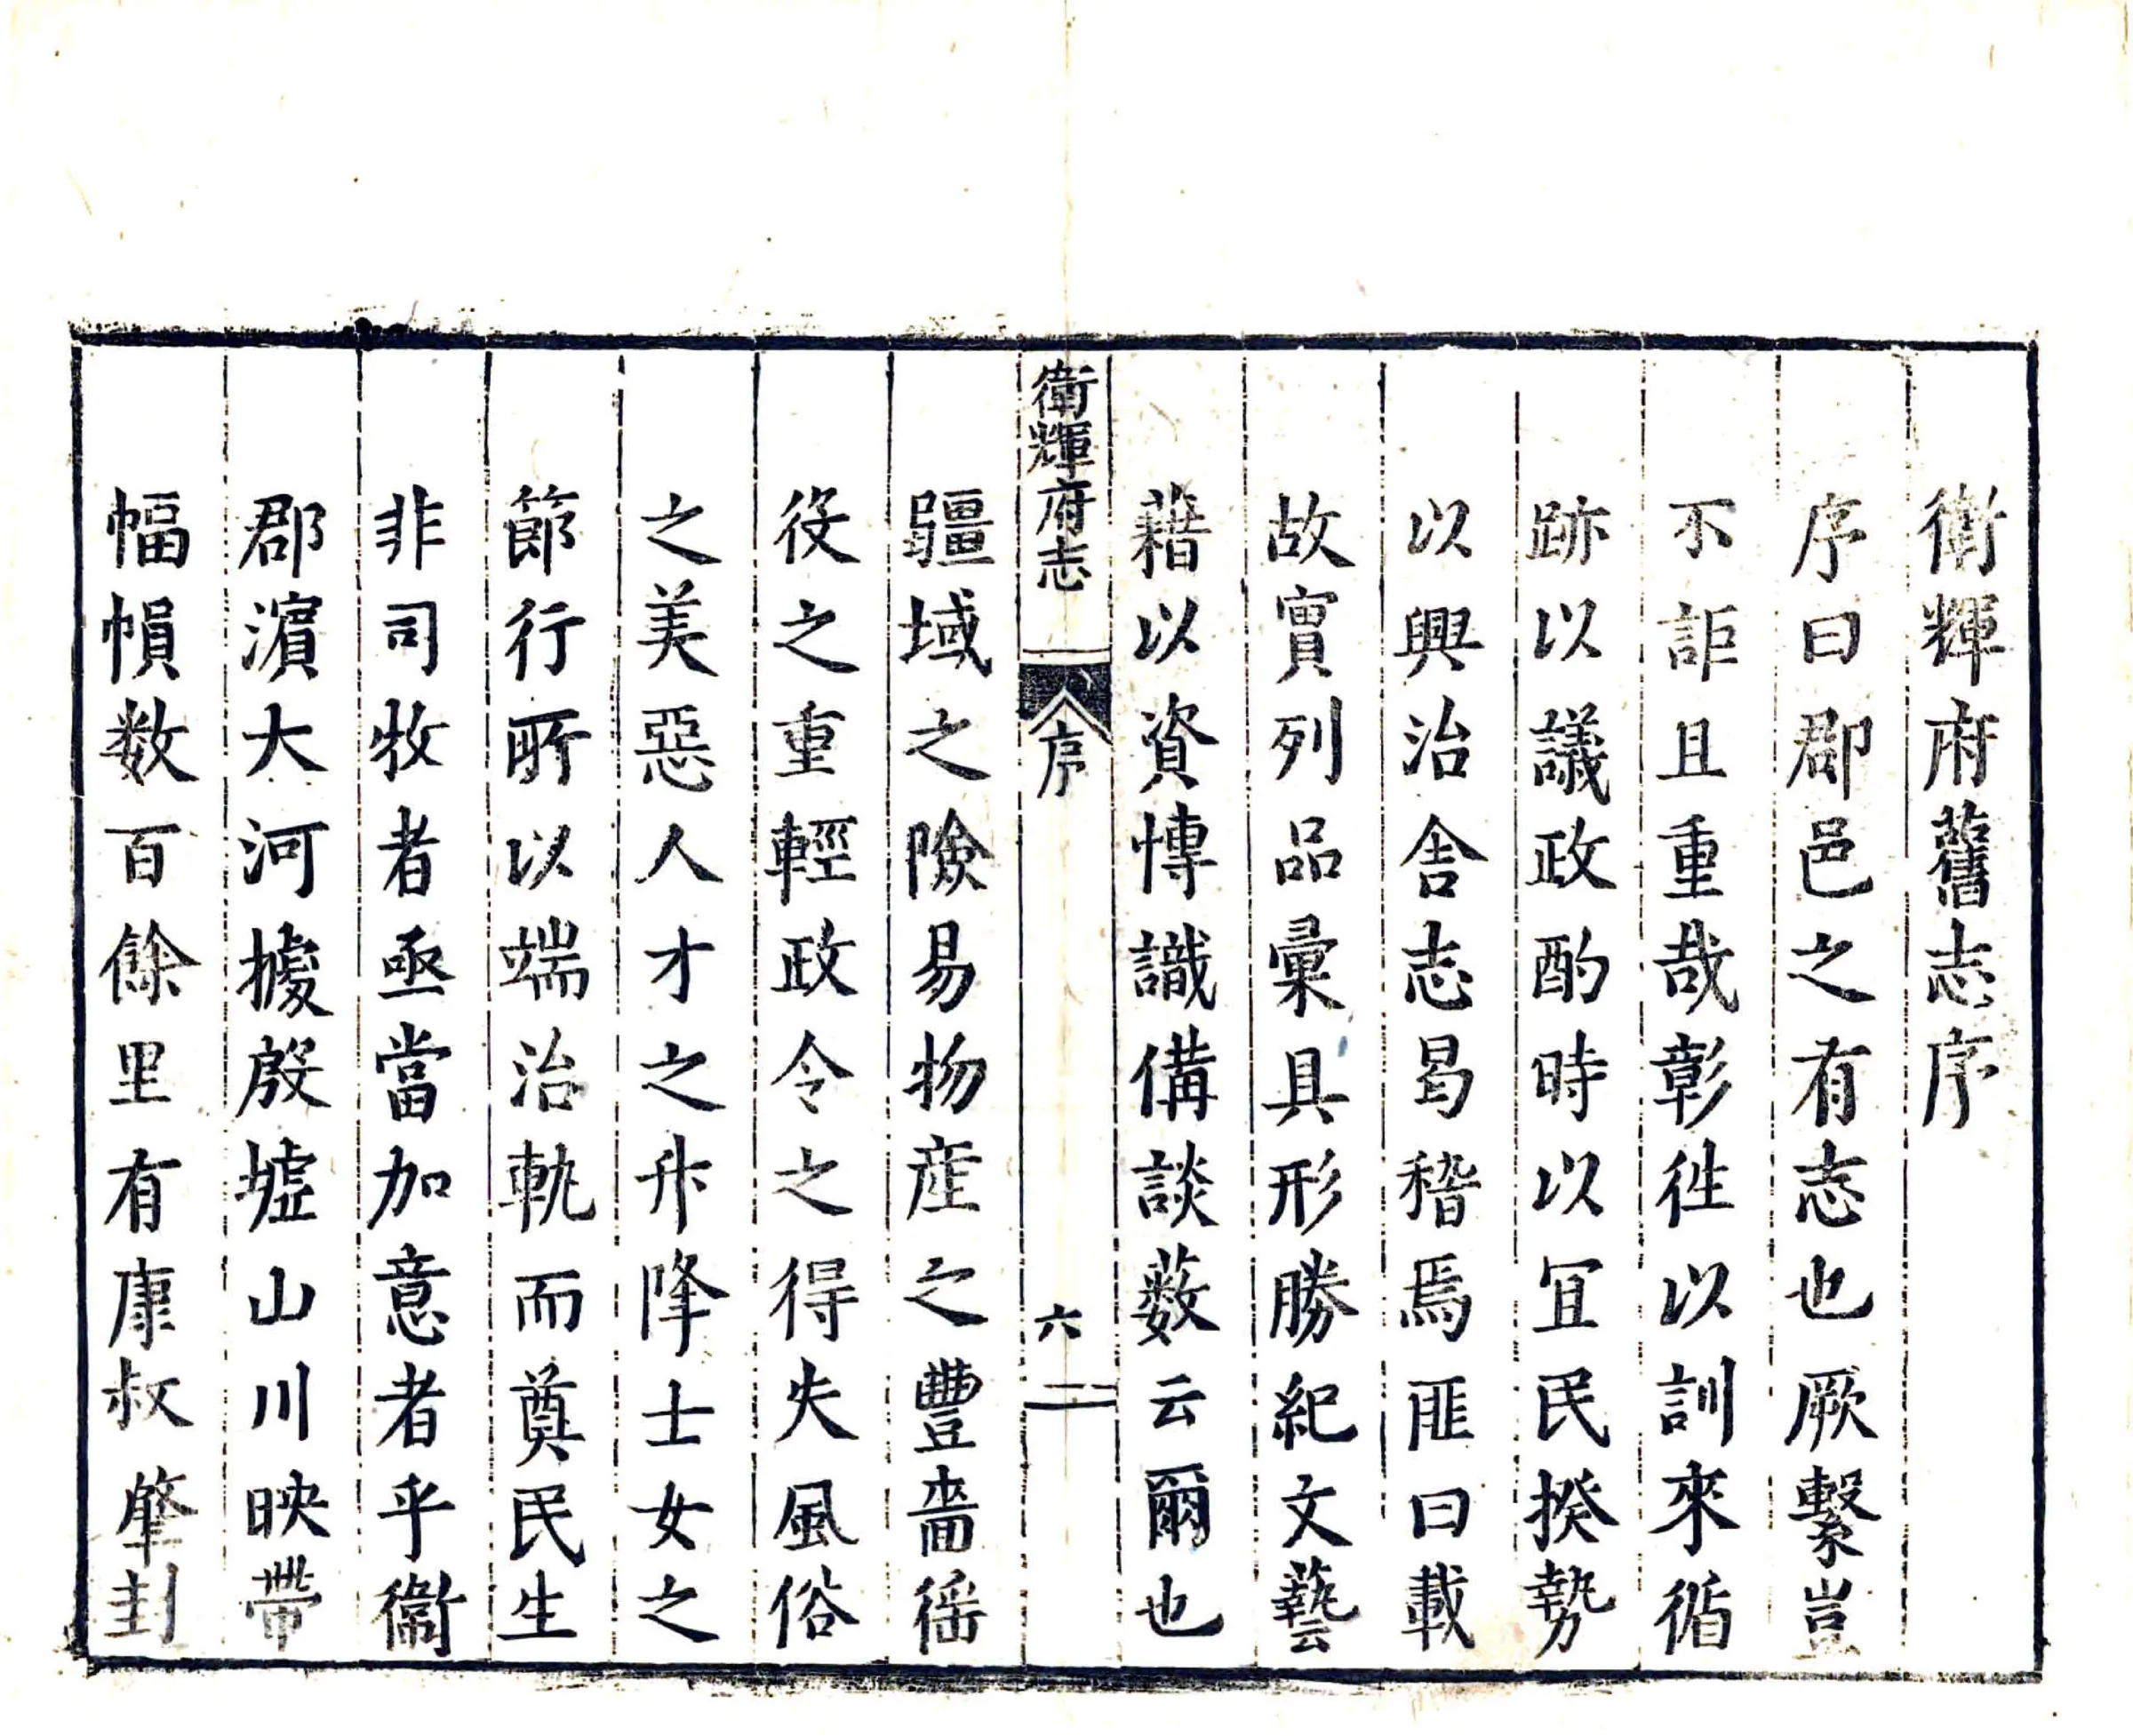 衛輝府舊志序
序曰郡邑之有志也厥繫豈
不詎且重哉彰徃以訓來循
跡以議政酌時以冝民揆勢
以興治舎志曷稽焉匪曰載
故實列品彚具形勝紀文藝
藉以資愽識備談薮云爾也
衛輝府志
序
六
疆域之險易物產之豐嗇徭
役之重輕政令之得失風俗
之美惡人才之升降士女之
節行所以端治軌而奠民生
非司牧者亟當加意者乎衞
郡濵大河據殷墟山川映帶
幅幁数百餘里有康叔肇封